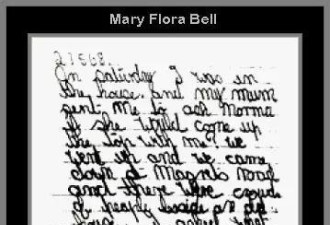 Mary Flora Bell
27568.
On saturday I was in
the house. and my mum
sent me to ask Norma
if she would come up
the top with me? we
went up and we came
down a Magrets Road
and there were crouds
of people beside an old
house. I asked what